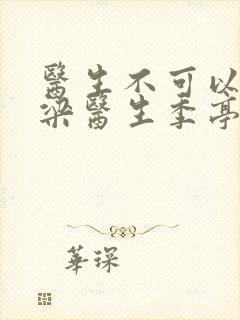 醫生不可以
梁醫生季亭
華琛